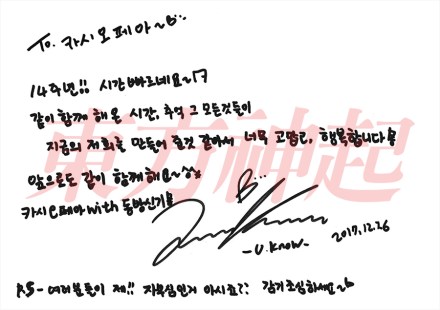 To. 카시오페아~B...
14주년!! 시간 빠르네요~17
같이 함께 해온 시간, 추억 그 모든것들이
지금의 저희를 만들어 준것 같아서 너무 고맙고, 행복합니다
앞으로도 같이 함께해요~^^
카시오페아 with 동방신기
東方神起
B...
-U.Know-
2017.12.26
P.S- 여러분들이 제!! 자부심인거 아시죠?? 감기조심하세요~b